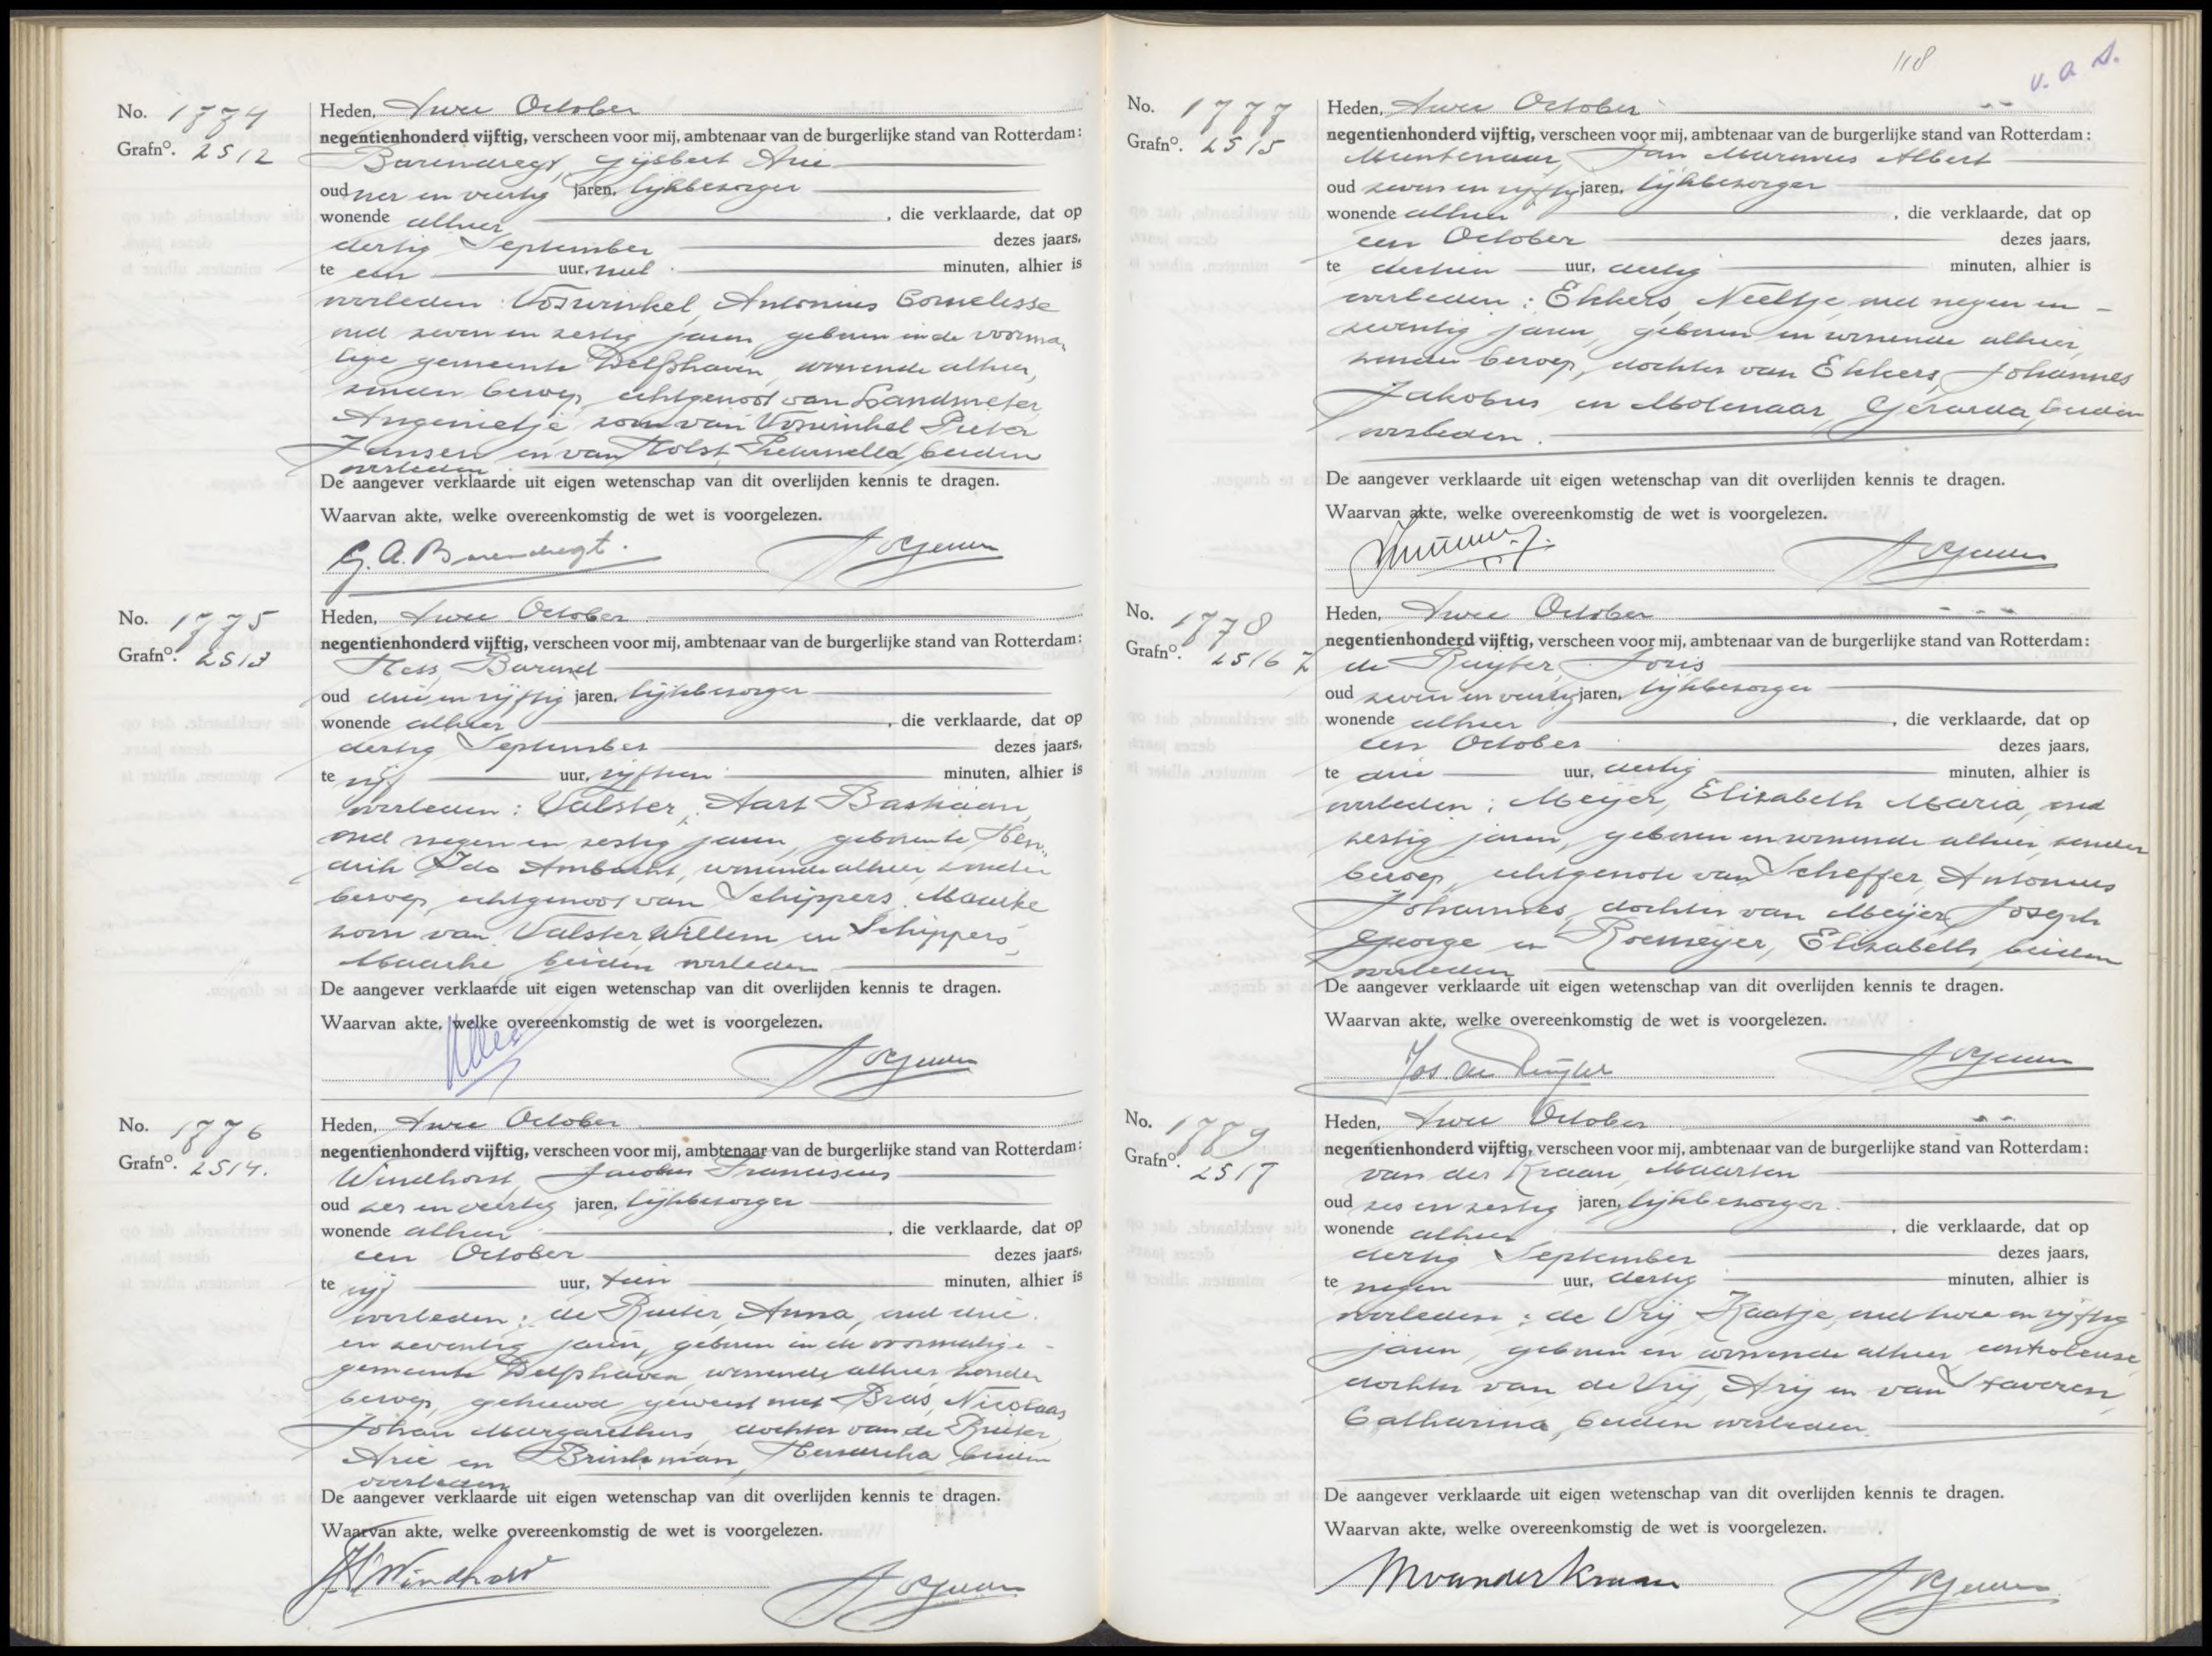 No. 1774
Grafno. 2512
Heden, twee October
negentienhonderd vijftig, verscheen voor mij, ambtenaar van de burgerlijke stand van Rotterdam:
Barendregt, Gijsbert Arie
oud vier en veertig jaren, lijkbezorger
wonende alhier, die verklaarde, dat op
dertig September dezes jaars,
te een uur, nul minuten, alhier is
overleden: Voswinkel, Antonius Cornelisse
oud zeven en zestig jaren, geboren in de voorma„
lige gemeente Delfshaven, wonende alhier,
zonder beroep, echtgenoot van Landmeter,
Angenietje, zoon van Voswinkel Pieter
Jansen en van Holst, Pieternella, beiden
overleden.
De aangever verklaarde uit eigen wetenschap van dit overlijden kennis te dragen.
Waarvan akte, welke overeenkomstig de wet is voorgelezen.
G. A. Barendregt.
No. 1775
Grafno. 2513
Heden, twee October
negentienhonderd vijftig, verscheen voor mij, ambtenaar van de burgerlijke stand van Rotterdam:
Hess, Barend
oud drie en vijftig jaren, lijkbezorger
wonende alhier, die verklaarde, dat op
dertig September dezes jaars,
te vijf uur, vijftien minuten, alhier is
overleden: Valster, Aart Bastiaan,
oud negen en zestig jaren, geboren te Hen„
drik Ido Ambacht, wonende alhier, zonder
beroep, echtgenoot van Schippers, Maaike
zoon van Valster, Willem en Schippers,
Maaike, beiden overleden
De aangever verklaarde uit eigen wetenschap van dit overlijden kennis te dragen.
Waarvan akte, welke overeenkomstig de wet is voorgelezen.
No. 1776
Grafno. 2514.
Heden, twee October
negentienhonderd vijftig, verscheen voor mij, ambtenaar van de burgerlijke stand van Rotterdam:
Windhorst, Jacobus Franciscus
oud zes en veertig jaren, lijkbezorger
wonende alhier, die verklaarde, dat op
een October dezes jaars,
te vijf uur, tien minuten, alhier is
overleden: de Ruiter, Anna, oud drie
en zeventig jaren, geboren in de voormalige
gemeente Delfshaven, wonende alhier, zonder
beroep, gehuwd geweest met Bras, Nicolaas
Johan Margarethus, dochter van de Ruiter,
Arie en Brinkman, Hendrika, beiden
overleden
De aangever verklaarde uit eigen wetenschap van dit overlijden kennis te dragen.
Waarvan akte, welke overeenkomstig de wet is voorgelezen.
Windhorst
118
v. a. d.
No. 1777
Grafno. 2515
Heden, twee October
negentienhonderd vijftig, verscheen voor mij, ambtenaar van de burgerlijke stand van Rotterdam:
Muntenaar, Jan Marinus Albert
oud zeven en vijftig jaren, lijkbezorger
wonende alhier, die verklaarde, dat op
een October dezes jaars,
te dertien uur, dertig minuten, alhier is
overleden: Ekkers, Neeltje, oud negen en
zeventig jaren, geboren en wonende alhier,
zonder beroep, dochter van Ekkers, Johannes
Jakobus en Molenaar, Gerarda, beiden
overleden.
De aangever verklaarde uit eigen wetenschap van dit overlijden kennis te dragen.
Waarvan akte, welke overeenkomstig de wet is voorgelezen.
No. 1778
Grafno. 2516
Heden, twee October
negentienhonderd vijftig, verscheen voor mij, ambtenaar van de burgerlijke stand van Rotterdam:
de Ruyter, Joris
oud zeven en veertig jaren, lijkbezorger
wonende alhier, die verklaarde, dat op
een October dezes jaars,
te drie uur, dertig minuten, alhier is
overleden: Meijer, Elizabeth Maria, oud
zestig jaren, geboren en wonende alhier, zonder
beroep, echtgenote van Scheffer, Antonius
Johannes, dochter van Meijer, Joseph
George en Roemeijer, Elizabeth, beiden
overleden
De aangever verklaarde uit eigen wetenschap van dit overlijden kennis te dragen.
Waarvan akte, welke overeenkomstig de wet is voorgelezen.
Jos. de Ruyter
No. 1779
Grafno. 2517
Heden, twee October
negentienhonderd vijftig, verscheen voor mij, ambtenaar van de burgerlijke stand van Rotterdam:
van der Kraan, Maarten
oud zes en zestig jaren, lijkbezorger
wonende alhier, die verklaarde, dat op
dertig September dezes jaars,
te negen uur, dertig minuten, alhier is
overleden: de Vrij, Kaatje, oud twee en vijftig
jaren, geboren en wonende alhier, controleuse,
dochter van de Vrij, Arij en van Staveren,
Catharina, beiden overleden.
De aangever verklaarde uit eigen wetenschap van dit overlijden kennis te dragen.
Waarvan akte, welke overeenkomstig de wet is voorgelezen.
M van der Kraan